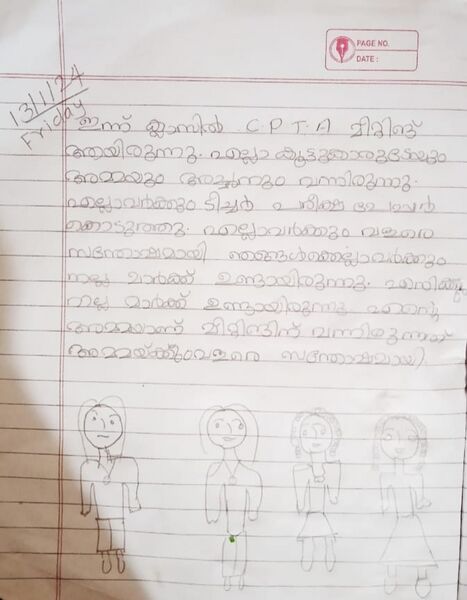 PAGE NO.
DATE :
13/1/24
Friday
ഇന്ന് ക്ലാസിൽ C.P.T.A മീറ്റിങ്ങ്
ആയിരുന്നു. എല്ലാ കൂട്ടുക്കാരുടേയും
അമ്മയും അച്ഛനും വന്നിരുന്നു.
എല്ലാവർക്കും ടീച്ചർ പരീക്ഷ പേപ്പർ
കൊടുത്തു. എല്ലാവർക്കും വളരെ
സന്തോഷമായി ഞങ്ങൾക്കെല്ലാവർക്കും
നല്ല മാർക്ക് ഉണ്ടായിരുന്നു. എനിക്കും
നല്ല മാർക്ക് ഉണ്ടായിരുന്നു എന്റെ
അമ്മയാണ് മീറ്റിങ്ങിന് വന്നിരുന്നത്
അമ്മയ്ക്കും വളരെ സന്തോഷമായി.